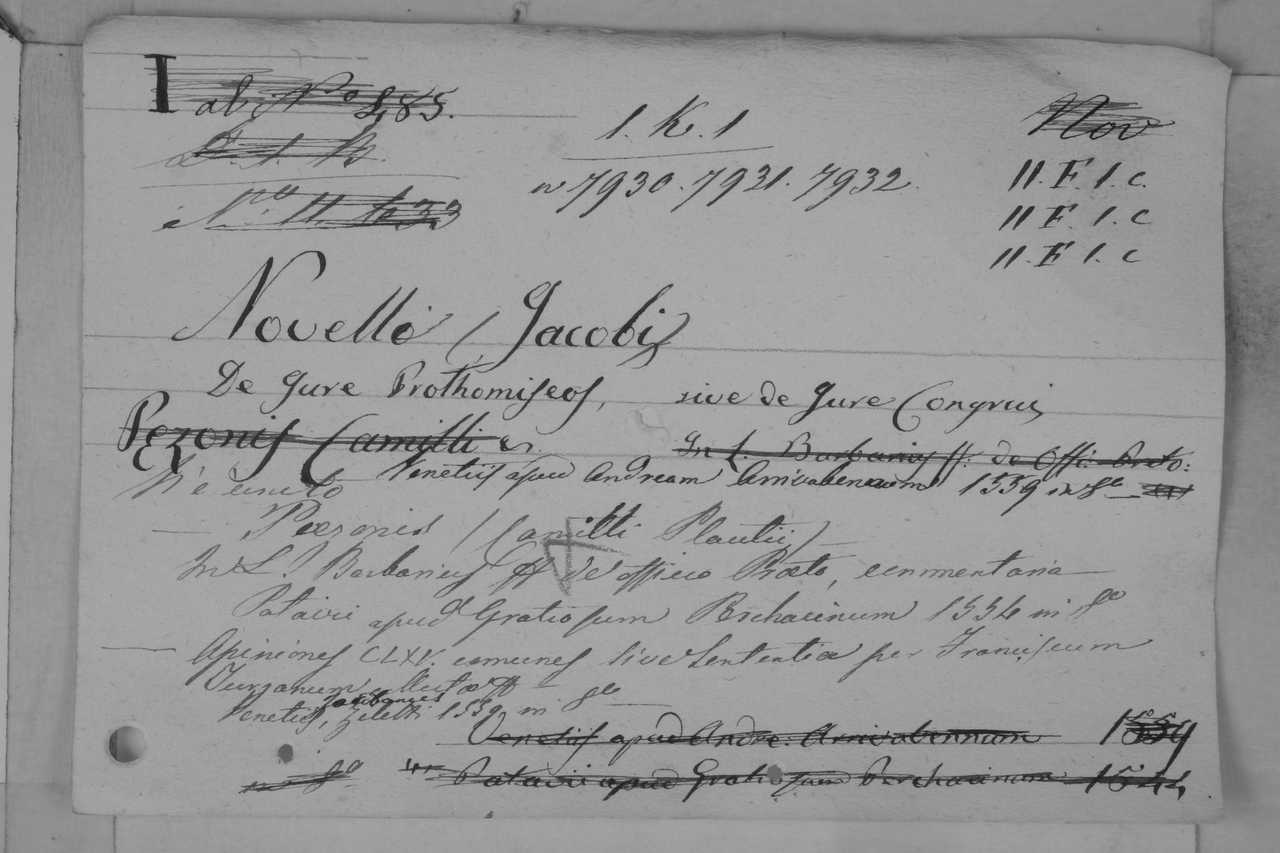 I ab. No 485.
1. K. 1
Nov
n 7930. 7931. 7932.
11. F. 1. c.
11 F. 1. c
11. F 1. c
Novello (Jacobi)
De Jure Prothomiseos, sive de Jure Congrui
Pezonis Camilli In l. Barbarius ff. de Offi. Preto:
Venetiis apud Andream Arrivabenaum 1559 in 8º
N'è unito
— Pezonis (Camilli Plautii)
In L. Barbarius ff de officio Præto, commentaria
Patavii apud Gratiosum Perchacinum 1554 in 8º
— Opiniones CLXV. comunes sive Sententia per Franciscum
Turzanum
Venetiis, Ziletti 1559 in 8º
Venetiis apud Andre. Arrivabennum 1559
in 8º Patavii apud Gratiosum Perchacinum 1554